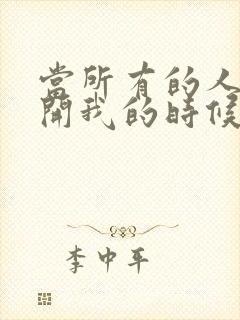 當所有的人
開我的時候
李中平